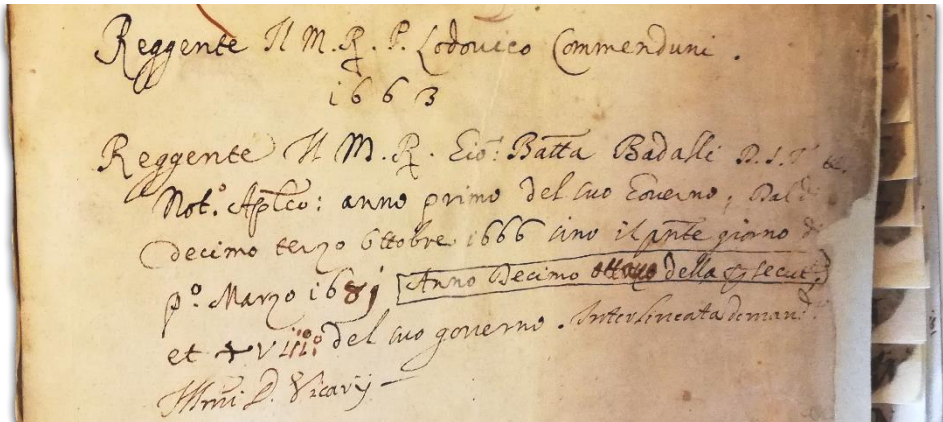 Reggente Il M. R. P. Lodovico Commenduni.
1663
Reggente Il M. R. Gio: Batta Badalli D. S. T.
Not.º Aplco: anno primo del suo Governo, Dal di
decimo terzo 8ttobre 1666 sino il pnte giorno di
pº. Marzo 1681 Anno Decimo ottavo della psecut.
et XVIIIº del suo governo. Interlineata de man.
Illmi D. Vicarij